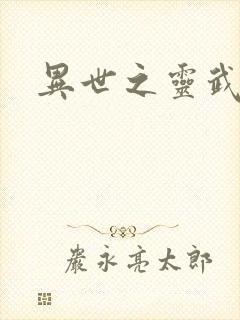 異世之靈武
嚴永亮太郎